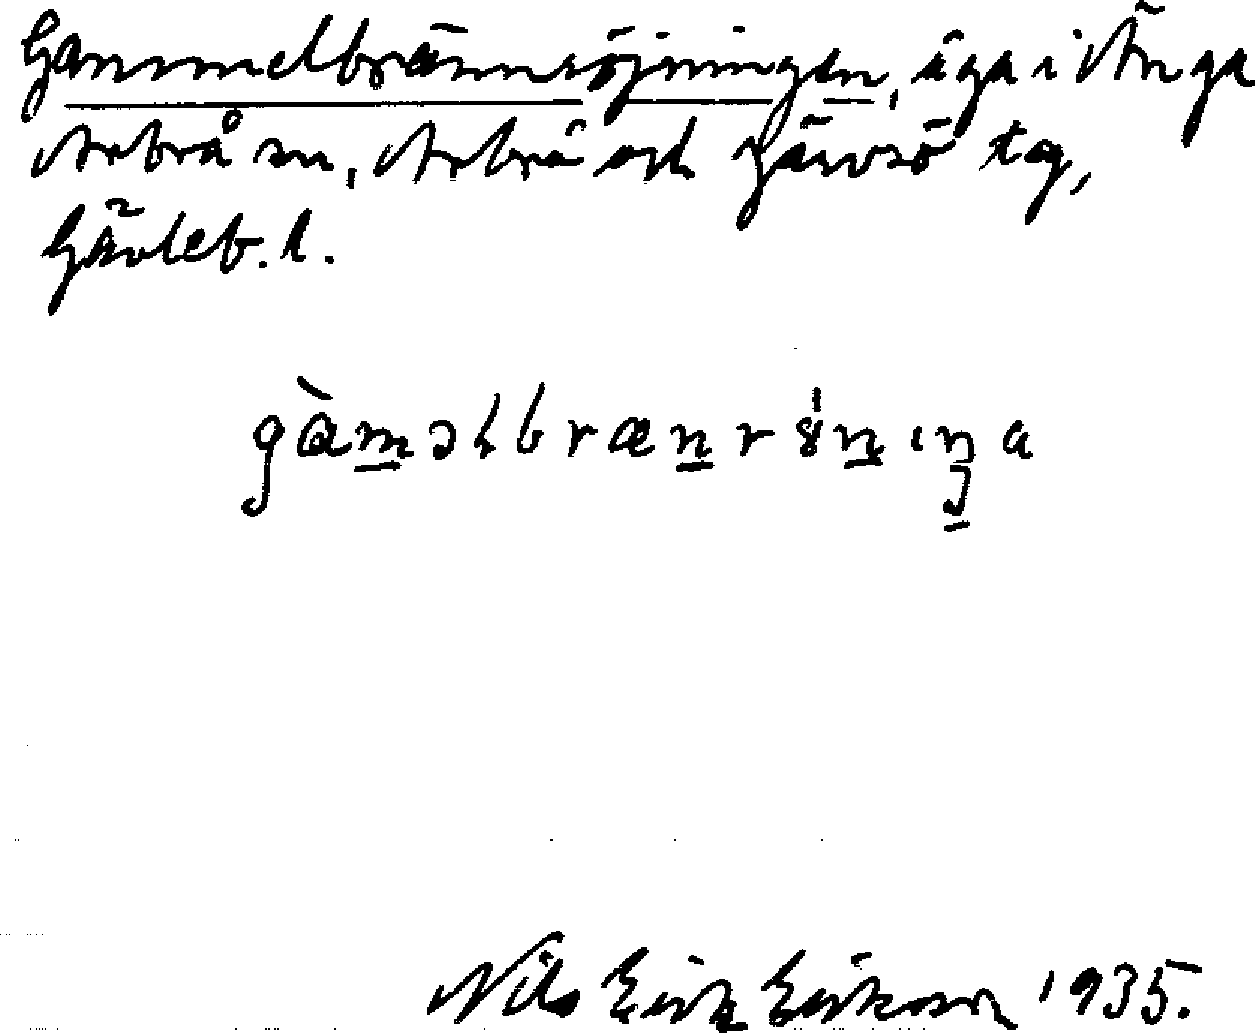 Gammelbrännröjningen, äga i Änga
Arbrå sn, Arbrå och Järvsö tg,
Gävleb. l.
gàməlbrænrö́niŋa
Nils Erik Erikson 1935.